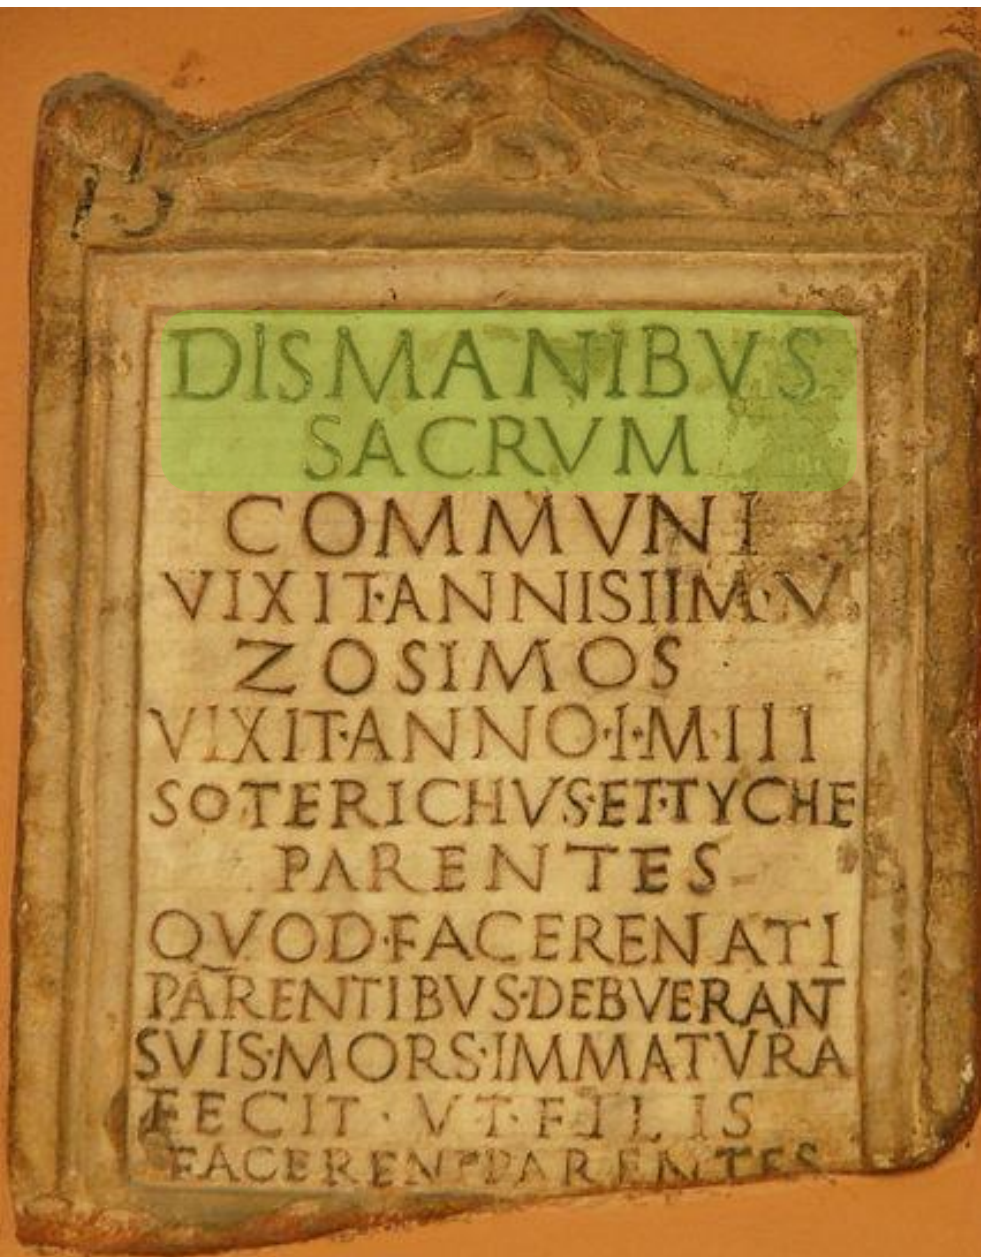 DISMANIBVS
SACRVM
COMMVNI
VIXIT·ANNISIIM·V
ZOSIMOS
VIXIT·ANNO·I·M·III
SOTERICHVS·ET·TYCHE
PARENTES
QVOD·FACERENATI
PARENTIBVS·DEBVERANT
SVIS·MORS·IMMATVRA
FECIT·VT·FILIS
FACERENT·PARENTES